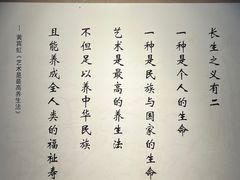 长生之义有二
一种是个人的生命
一种是民族与国家的生命
艺术是最高的养生法
不但足以养中华民族
且能养成全人类的福祉寿
——黄宾虹《艺术是最高养生法》